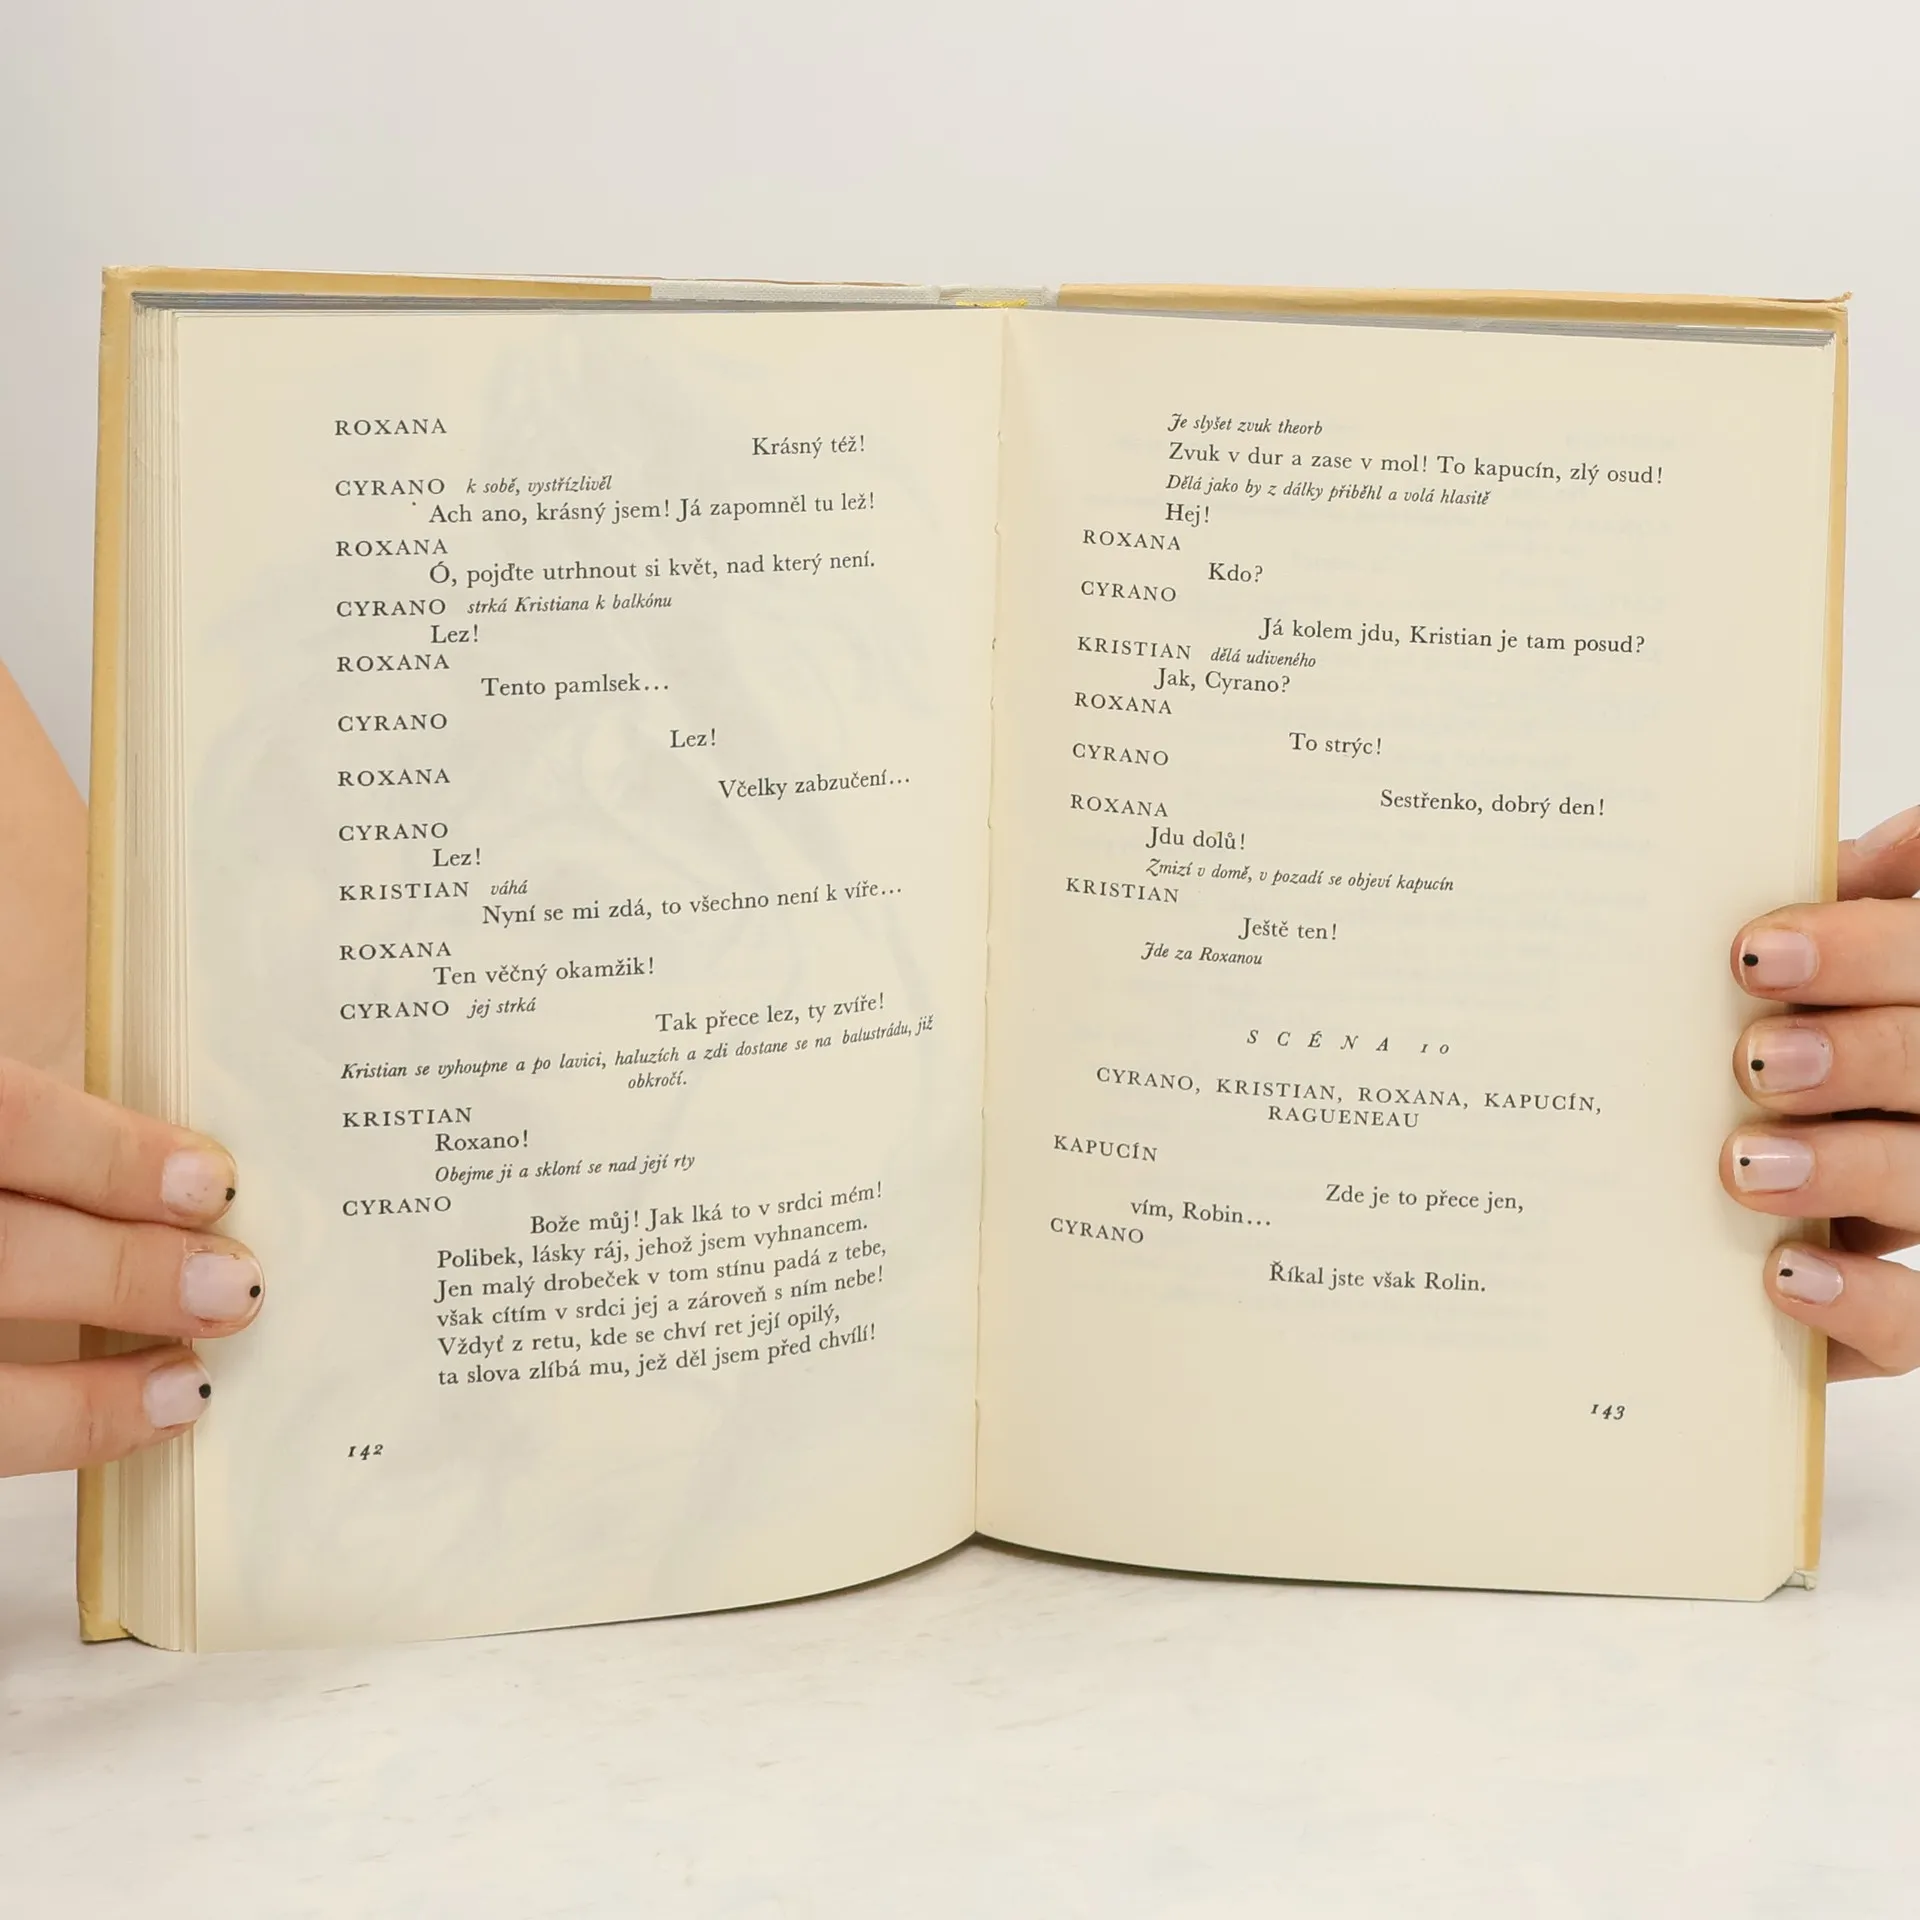 ROXANA
Krásný též!
CYRANO k sobě, vystřízlivěl
Ach ano, krásný jsem! Já zapomněl tu lež!
ROXANA
Ó, pojďte utrhnout si květ, nad který není.
CYRANO strká Kristiana k balkónu
Lez!
ROXANA
Tento pamlsek...
CYRANO
Lez!
ROXANA
Včelky zabzučení...
CYRANO
Lez!
KRISTIAN váhá
Nyní se mi zdá, to všechno není k víře...
ROXANA
Ten věčný okamžik!
CYRANO jej strká
Tak přece lez, ty zvíře!
Kristian se vyhoupne a po lavici, haluzích a zdi dostane se na balustrádu, již
obkročí.
KRISTIAN
Roxano!
Obejme ji a skloní se nad její rty
CYRANO
Bože můj! Jak lká to v srdci mém!
Polibek, lásky ráj, jehož jsem vyhnancem.
Jen malý drobeček v tom stínu padá z tebe,
však cítím v srdci jej a zároveň s ním nebe!
Vždyť z retu, kde se chví ret její opilý,
ta slova zlíbá mu, jež děl jsem před chvílí!
142
Je slyšet zvuk theorb
Zvuk v dur a zase v mol! To kapucín, zlý osud!
Dělá jako by z dálky přiběhl a volá hlasitě
Hej!
ROXANA
Kdo?
CYRANO
Já kolem jdu, Kristian je tam posud?
KRISTIAN dělá udiveného
Jak, Cyrano?
ROXANA
To strýc!
CYRANO
Sestřenko, dobrý den!
ROXANA
Jdu dolů!
Zmizí v domě, v pozadí se objeví kapucín
KRISTIAN
Ještě ten!
Jde za Roxanou
SCÉNA 10
CYRANO, KRISTIAN, ROXANA, KAPUCÍN,
RAGUENEAU
KAPUCÍN
Zde je to přece jen,
vím, Robin...
CYRANO
Říkal jste však Rolin.
143